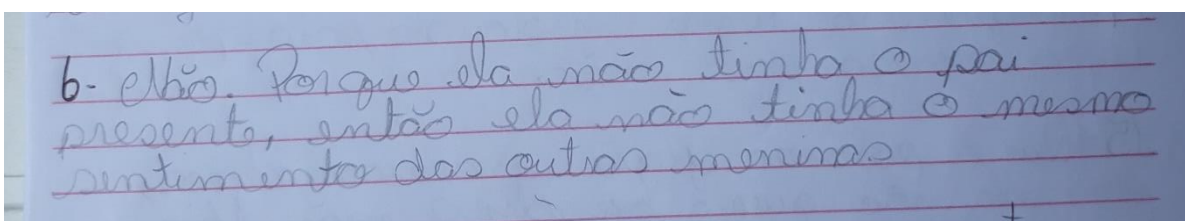 6- Não. Porque ela não tinha o pai
presente, então ela não tinha o mesmo
sentimento das outras meninas